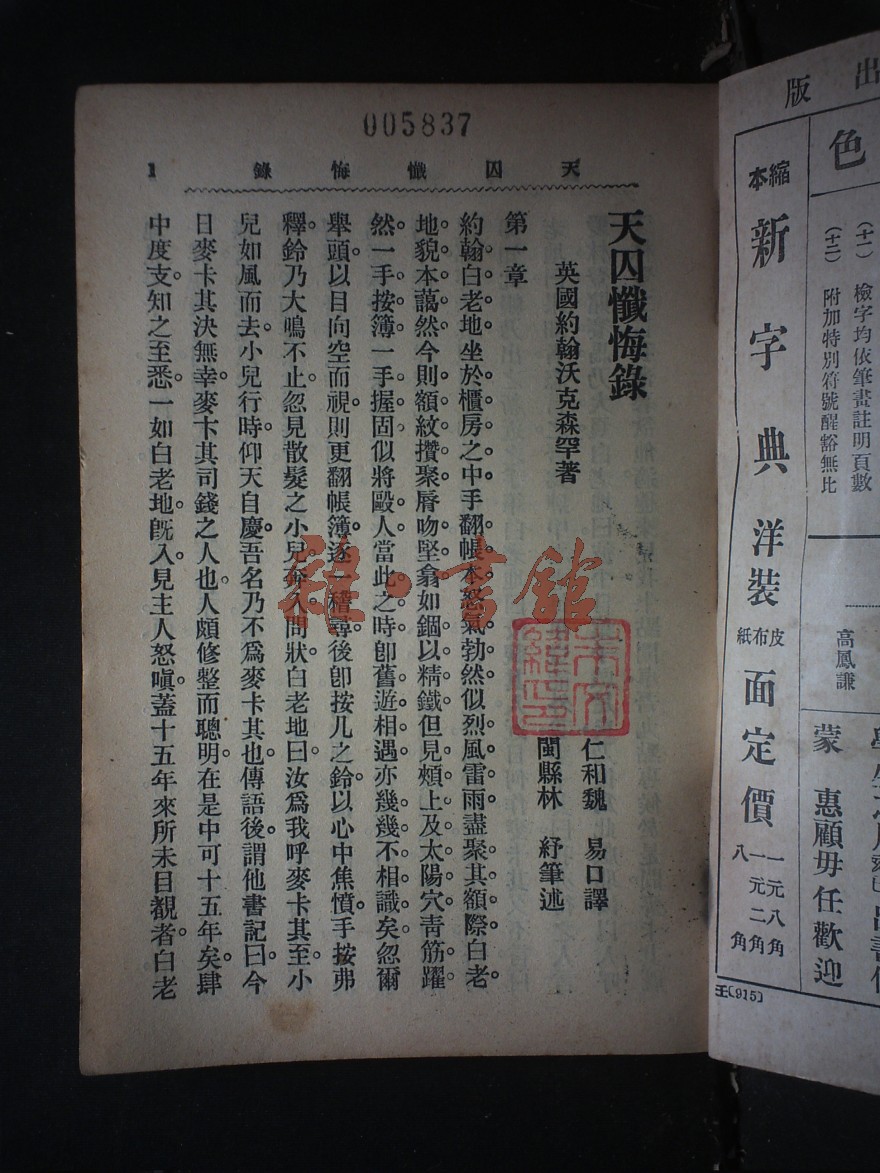 出版
色
(十一) 檢字均依筆畫註明頁數
(十二) 附加特別符號醒豁無比
高鳳謙
蒙 惠顧毋任歡迎
縮本 新字典 洋裝 皮布紙面定價 一元八角 一元二角 八角
王(915)
005837
天囚懺悔錄 1
天囚懺悔錄
英國約翰沃克森罕著
仁和魏 易口譯
閩縣林 紓筆述
第一章
約翰白老地坐於櫃房之中手翻帳本怒氣勃然似烈風雷雨盡聚其額際白老
地貌本藹然今則額紋攢聚脣吻堅翕如錮以精鐵但見頰上及太陽穴靑筋躍
然一手按簿一手握固似將毆人當此之時卽舊遊相遇亦幾幾不相識矣忽爾
舉頭以目向空而視則更翻帳簿逐一稽尋後卽按几之鈴以心中焦憤手按弗
釋鈴乃大鳴不止忽見散髮之小兒奔入問狀白老地曰汝爲我呼麥卡其至小
兒如風而去小兒行時仰天自慶吾名乃不爲麥卡其也傳語後謂他書記曰今
日麥卡其決無幸麥卞其司錢之人也人頗修整而聰明在是中可十五年矣肆
中度支知之至悉一如白老地旣入見主人怒嗔蓋十五年來所未目覩者白老
雜·書館